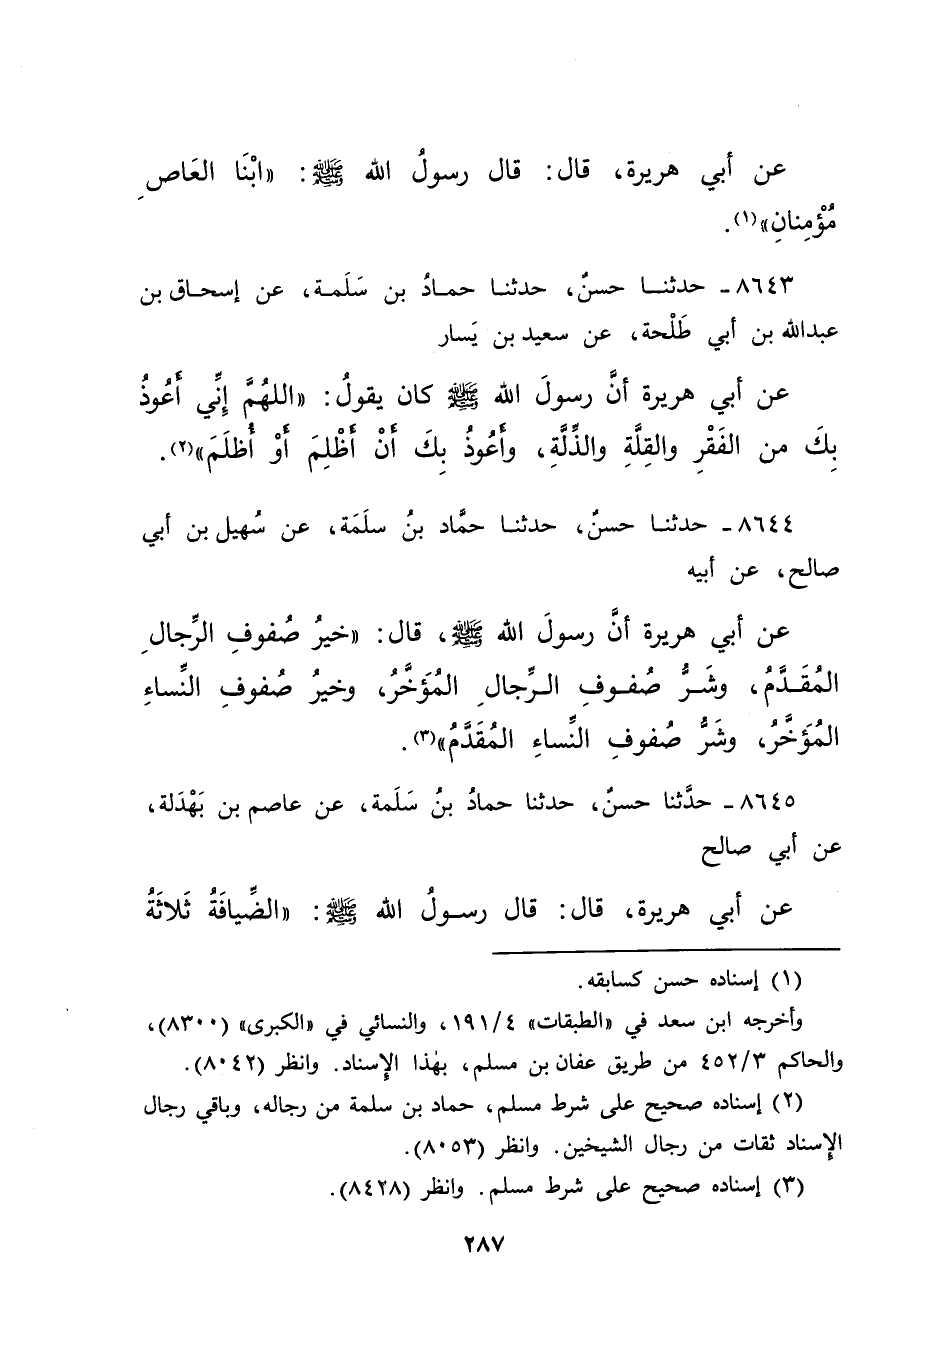 عن أبي هريرة، قال: قال رسولُ الله ﷺ: «ابْنَا العَاصِ
مُؤْمِنانِ»(١).
٨٦٤٣ـ حدثنــا حسنٌ، حدثنـا حمـادُ بن سَلَمـة، عن إسحـاق بن
عبدالله بن أبي طَلْحة، عن سعيد بن يَسار
عن أبي هريرة أنَّ رسولَ الله ﷺ كان يقولُ: «اللهُمَّ إِنِّي أَعُوذُ
بِكَ من الفَقْرِ والقِلَّةِ والذِّلَّةِ، وأَعُوذُ بِكَ أَنْ أَظْلِمَ أَوْ أُظلَمَ»(٢).
٨٦٤٤ـ حدثنـا حسنٌ، حدثنـا حمَّاد بنُ سلَمَة، عن سُهيل بن أبي
صالح، عن أبيه
عن أبي هريرة أنَّ رسولَ الله ﷺ، قال: «خيرُ صُفوفِ الرِّجالِ
المُقَـدَّمُ، وشَـرُّ صُفـوفِ الـرِّجالِ المُؤَخَّرُ، وخيرُ صُفوفِ النِّساءِ
المُؤَخَّرُ، وشَرُّ صُفوفِ النِّساءِ المُقَدَّمُ»(٣).
٨٦٤٥ـ حدَّثنا حسنٌ، حدثنا حمادُ بنُ سَلَمة، عن عاصم بن بَهْدَلة،
عن أبي صالح
عن أبي هريرة، قال: قال رسـولُ الله ﷺ: «الضِّيافَةُ ثَلاثَةُ
(١) إسناده حسن كسابقه.
وأخرجه ابن سعد في «الطبقات» ١٩١/٤، والنسائي في «الكبرى» (٨٣٠٠)،
والحاكم ٤٥٢/٣ من طريق عفان بن مسلم، بهٰذا الإسناد. وانظر (٨٠٤٢).
(٢) إسناده صحيح على شرط مسلم، حماد بن سلمة من رجاله، وباقي رجال
الإسناد ثقات من رجال الشيخين. وانظر (٨٠٥٣).
(٣) إسناده صحيح على شرط مسلم. وانظر (٨٤٢٨).
٢٨٧